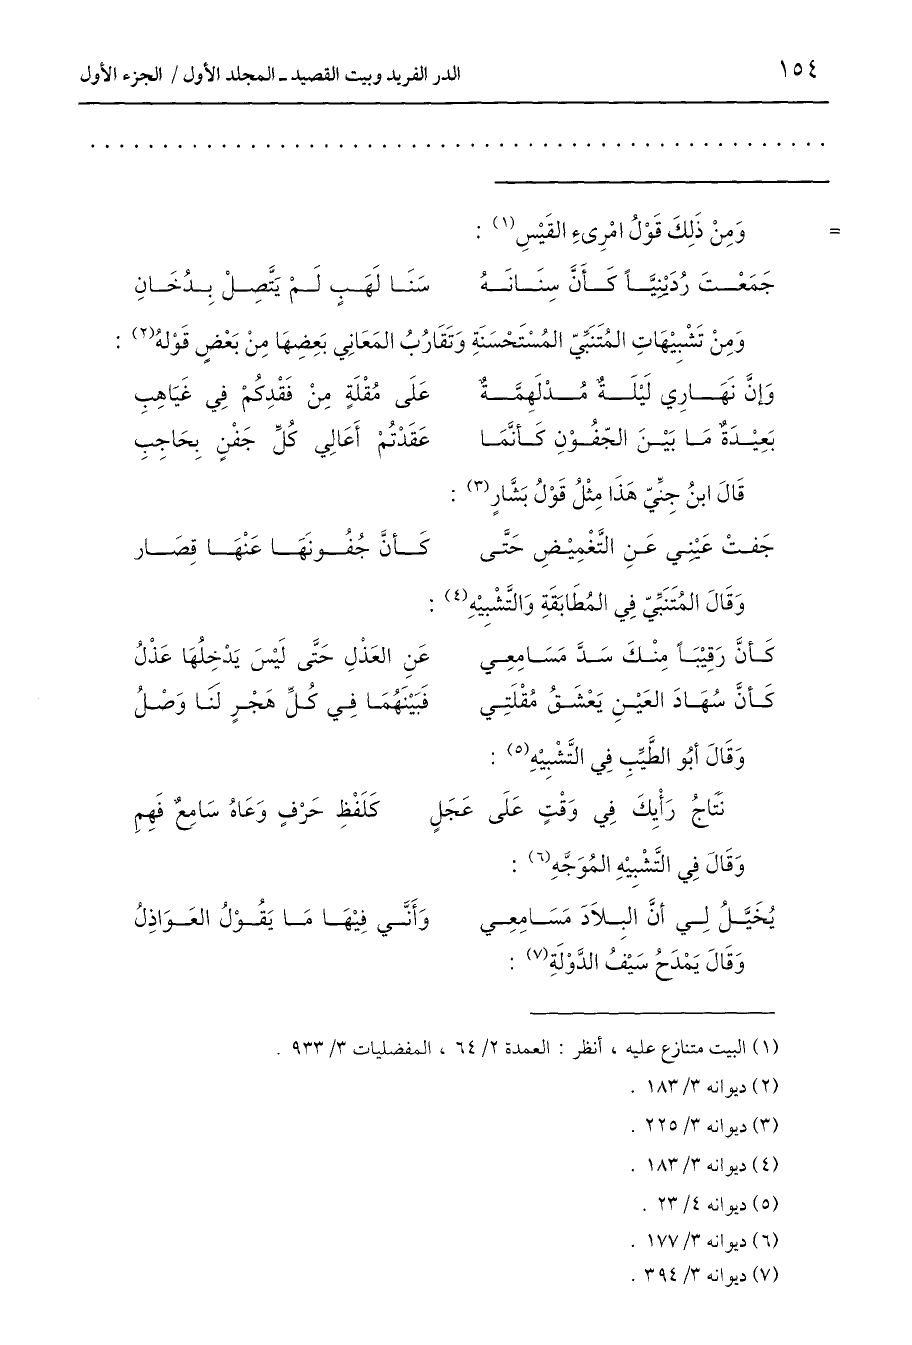 ١٥٤ الدر الفريد وبيت القصيد ـ المجلد الأول / الجزء الأول
. . . . . . . . . . . . . . . . . . . . . . . . . . . . . . . . . . . . . . . . . . . . . . . . . .
= وَمِنْ ذَلِكَ قَوْلُ امْرِىءِ القَيْسِ(١) :
جَمَعْتَ رُدَيْنِيَّاً كَأَنَّ سِنَانَهُ سَنَا لَهَبٍ لَمْ يَتَّصِلْ بِدُخَانِ
وَمِنْ تَشْبِيْهَاتِ المُتَنَبِّيّ المُسْتَحْسَنَةِ وَتَقَارُبُ المَعَانِي بَعِضِهَا مِنْ بَعْضٍ قَوْلهُ(٢) :
وَإنَّ نَهَارِي لَيْلَةٌ مُدْلَهِمَّةٌ عَلَى مُقْلَةٍ مِنْ فَقْدِكُمْ فِي غَيَاهِبِ
بَعِيْدَةُ مَا بَيْنَ الجُّفُوْنِ كَأنَّمَا عَقَدْتُمْ أَعَالِي كُلِّ جَفْنٍ بِحَاجِبِ
قَالَ ابنُ جِنِّيّ هَذَا مِثْلُ قَوْلُ بَشَّارٍ(٣) :
جَفتْ عَيْنِي عَنِ التَّغْمِيْضِ حَتَّى كَأنَّ جُفُونَهَا عَنْهَا قِصَار
وَقَالَ المُتَنَبِّيّ فِي المُطَابَقَةِ وَالتَّشْبِيْهِ(٤) :
كَأنَّ رَقِيْبَاً مِنْكَ سَدَّ مَسَامِعِي عَنِ العَذْلِ حَتَّى لَيْسَ يَدْخِلُهَا عَذْلُ
كَأنَّ سُهَادَ العَيْنِ يَعْشَقُ مُقْلَتِي فَبَيْنَهُمَا فِي كُلِّ هَجْرٍ لَنَا وَصْلُ
وَقَالَ أبُو الطَّيِّبِ فِي التَّشْبِيْهِ(٥) :
نَتَاجُ رَأْيِكَ فِي وَقْتٍ عَلَى عَجَلٍ كَلَفْظِ حَرْفٍ وَعَاهُ سَامِعٌ فَهِمِ
وَقَالَ فِي التَّشْبِيْهِ المُوَجَّهِ(٦) :
يُخَيَّلُ لِي أنَّ البِلاَدَ مَسَامِعِي وَأنَّي فِيْهَا مَا يَقُوْلُ العَوَاذِلُ
وَقَالَ يَمْدَحُ سَيْفُ الدَّوْلَةِ(٧) :
(١) البيت متنازع عليه ، أنظر : العمدة ٢/ ٦٤ ، المفضليات ٣/ ٩٣٣ .
(٢) ديوانه ٣/ ١٨٣ .
(٣) ديوانه ٣/ ٢٢٥ .
(٤) ديوانه ٣/ ١٨٣ .
(٥) ديوانه ٤/ ٢٣ .
(٦) ديوانه ٣/ ١٧٧ .
(٧) ديوانه ٣/ ٣٩٤ .